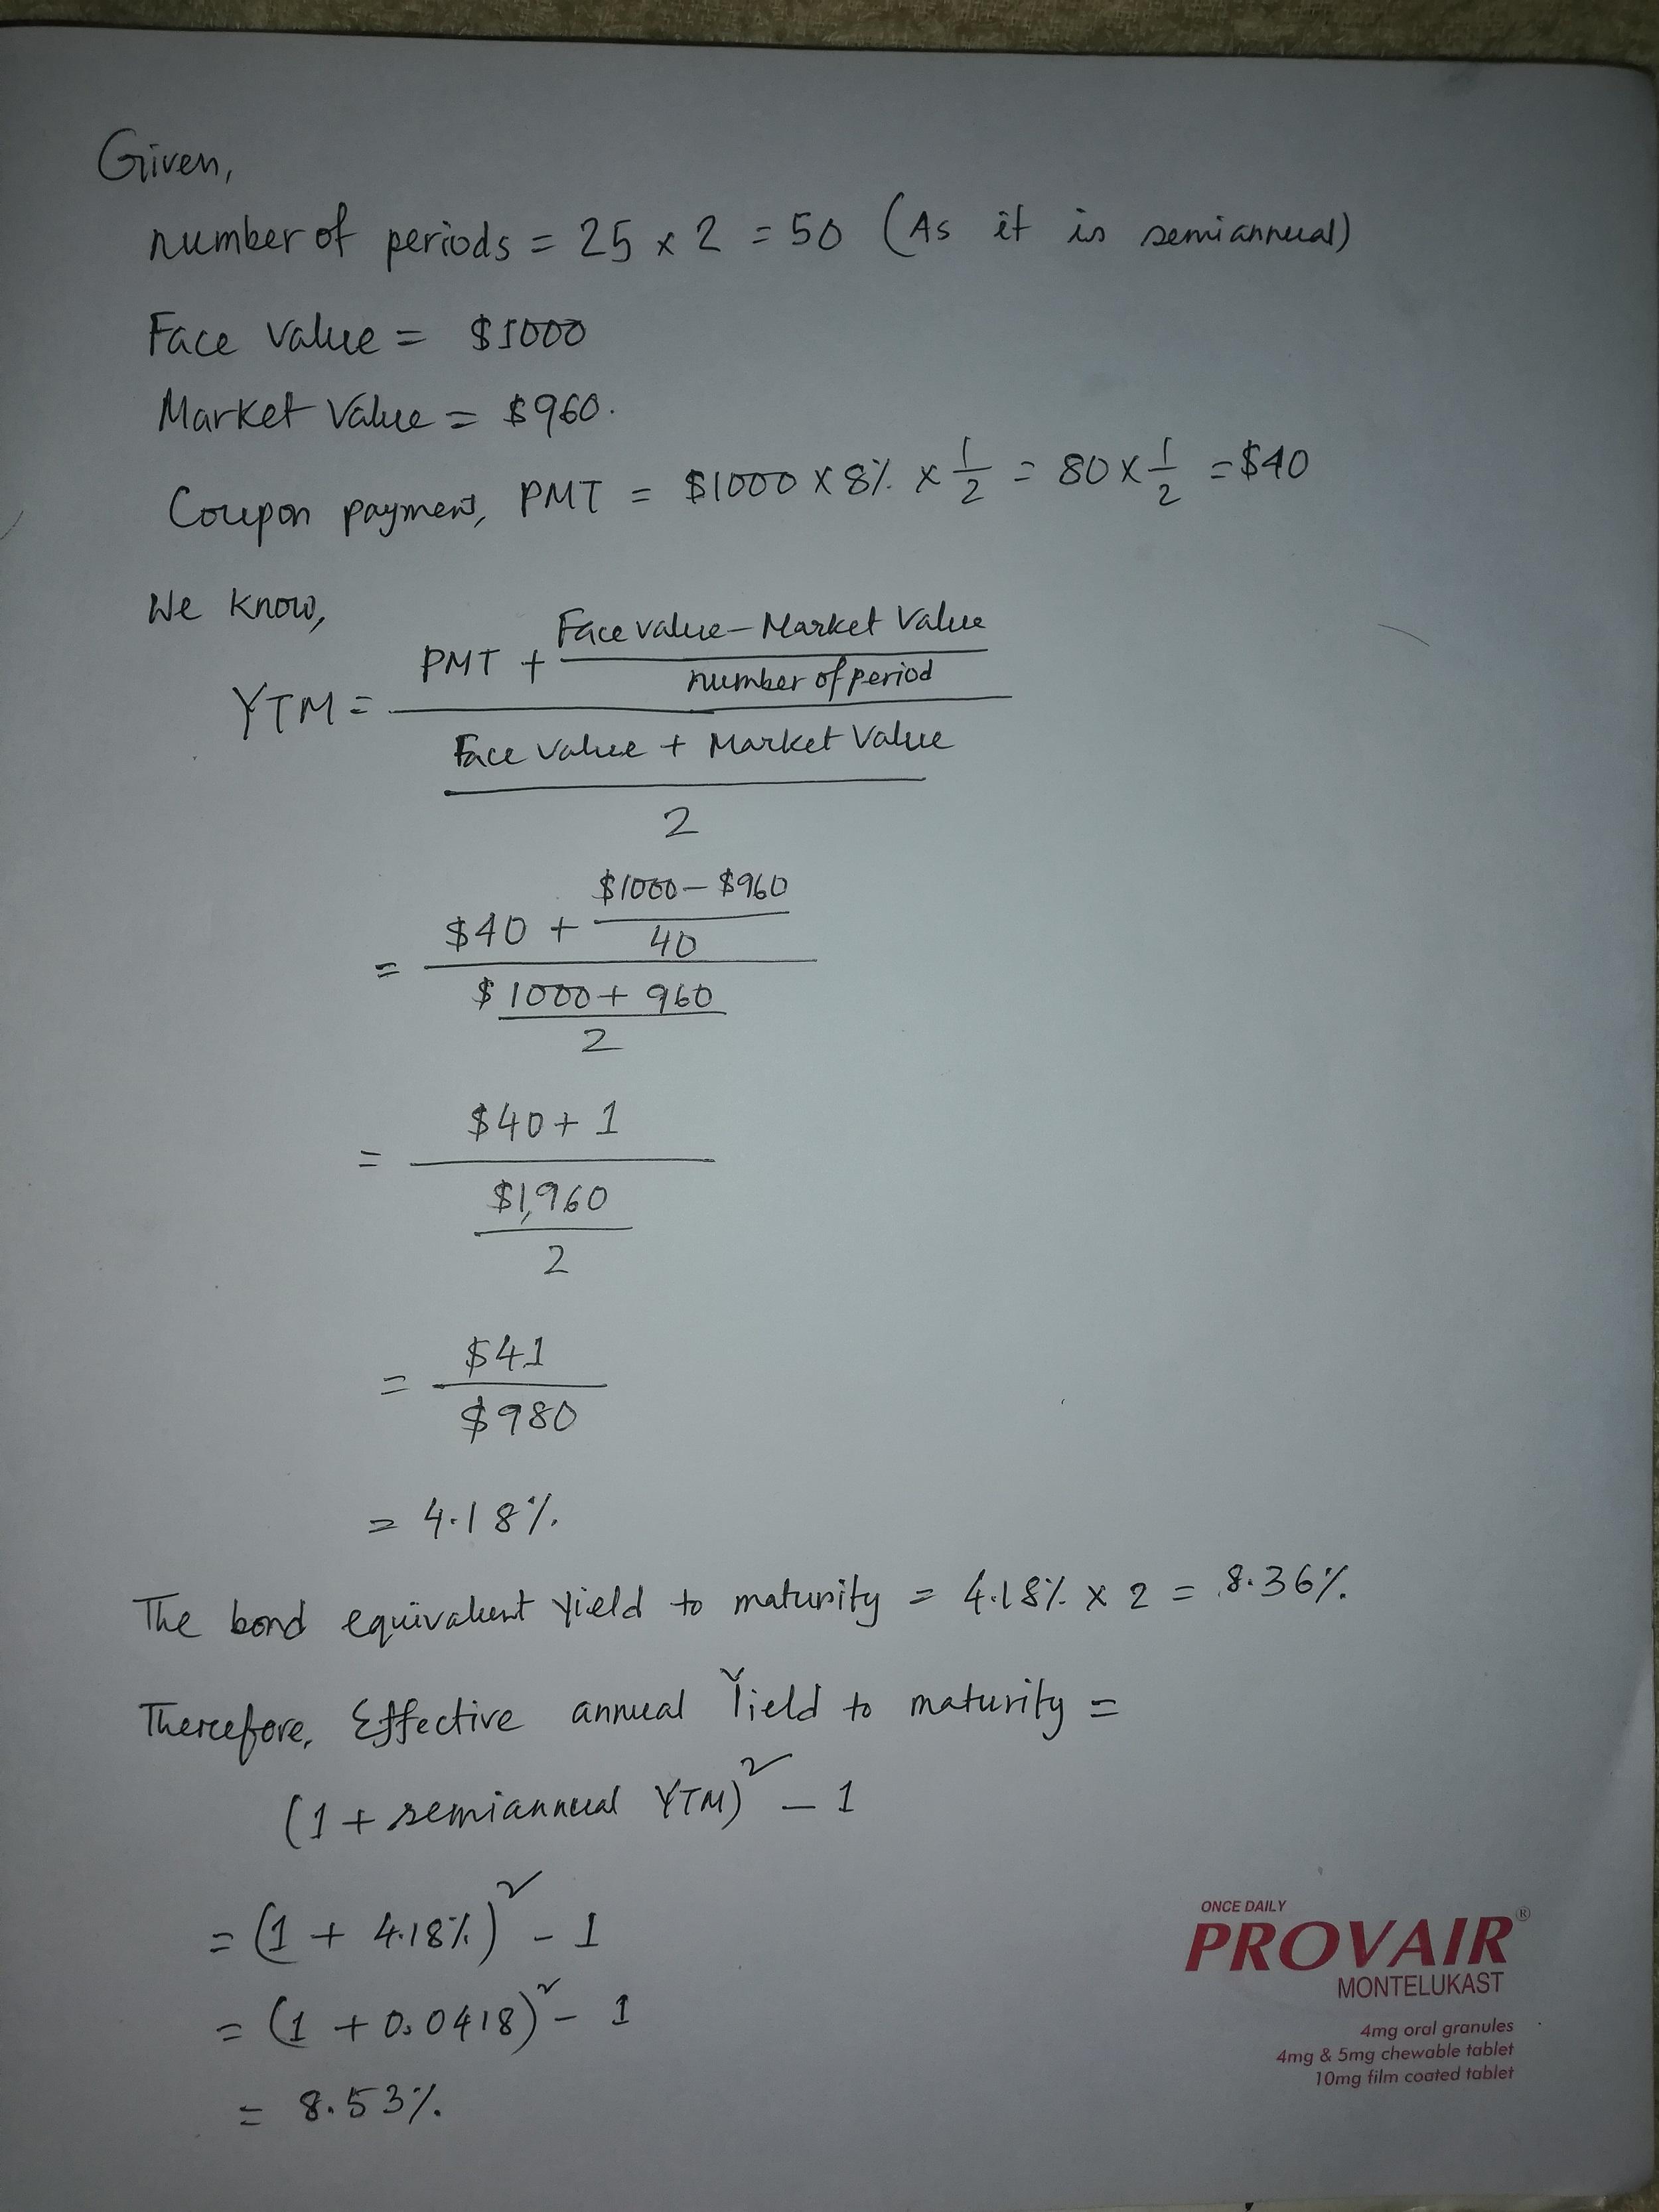 Given,
number of periods = 25 x 2 = 50 (As it is semiannual)
Face value = $1000
Market Value = $960.
Coupon payment, PMT = $1000 x 8% x 1/2 = 80 x 1/2 = $40
We know,
YTM = PMT + Face value - Market Value
number of period
Face value + Market Value
2
= $40 + $1000 - $960
40
$1000 + 960
2
= $40 + 1
$1,960
2
= $41
$980
= 4.18%.
The bond equivalent Yield to maturity = 4.18% x 2 = 8.36%.
Therefore, Effective annual Yield to maturity =
(1 + semiannual YTM)² - 1
= (1 + 4.18%)² - 1
= (1 + 0.0418)² - 1
= 8.53%.
ONCE DAILY
PROVAIR®
MONTELUKAST
4mg oral granules
4mg & 5mg chewable tablet
10mg film coated tablet